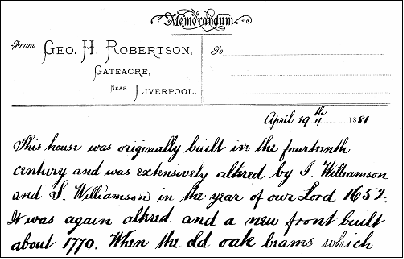 Memorandum
From
GEO. H. ROBERTSON,
GATEACRE,
NEAR LIVERPOOL.
To
April 19th 1881
This house was originally built in the fourteenth
century and was extensively altered by J. Williamson
and S. Williamson in the year of our Lord 1657.
It was again altered and a new front built
about 1770. When the old oak beams which